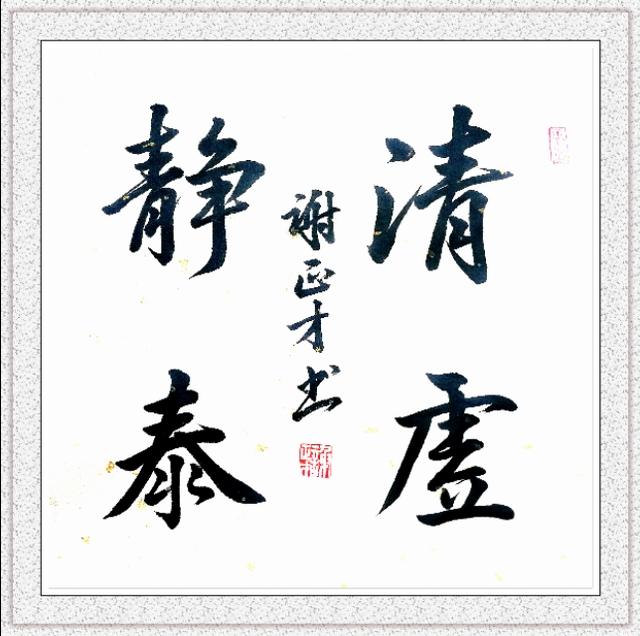 清虚
静泰
谢正才书